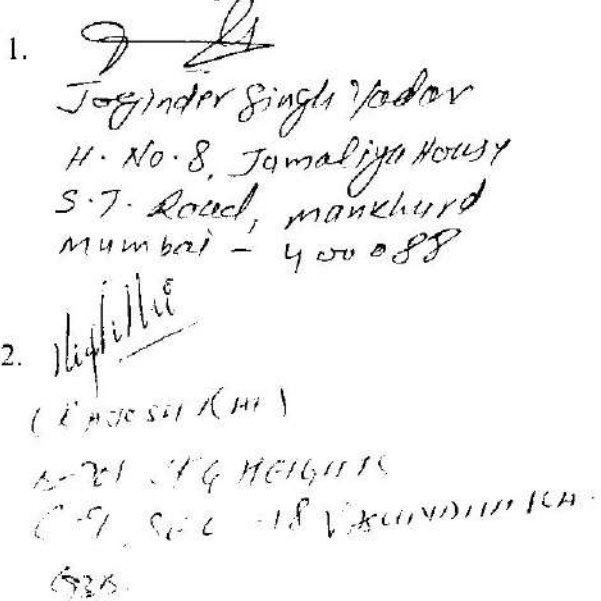 1.
Joginder Singh Yadav
H. No. 8, Jamaliya House
S.T. Road, mankhurd
mumbai - 400088
2.
(RAJESH RAI)
HEIGHTS
SEC - 18 VASUNDHRA
GZB.